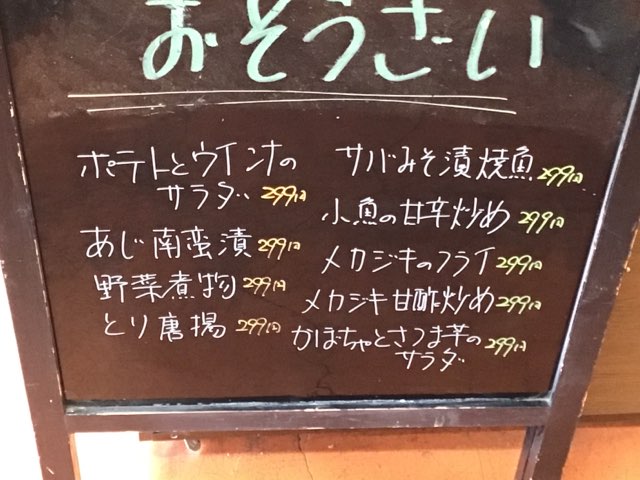 おそうざい
ポテトとウインナの
サラダ 299円
あじ南蛮漬 299円
野菜煮物 299円
とり唐揚 299円
サバみそ漬焼魚 299円
小魚の甘辛炒め 299円
メカジキのフライ 299円
メカジキ甘酢炒め 299円
かぼちゃとさつま芋の
サラダ 299円